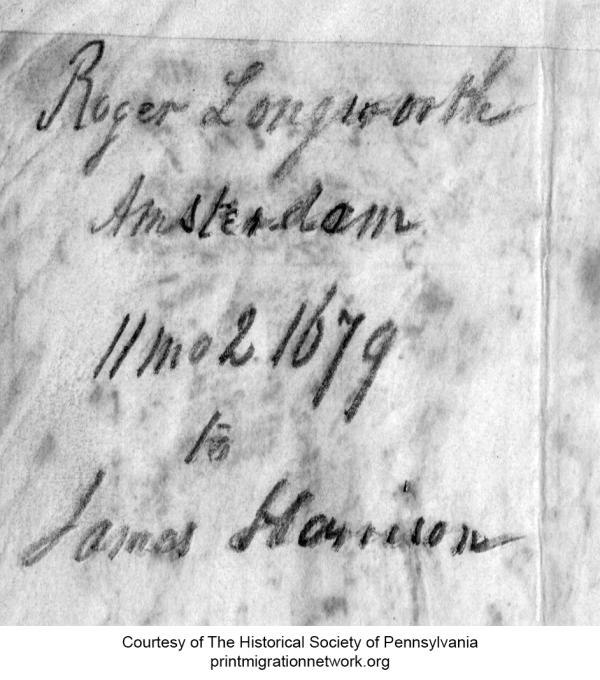 Roger Longworth
Amsterdam
11 mo 2. 1679
to
James Harrison
Courtesy of The Historical Society of Pennsylvania
printmigrationnetwork.org